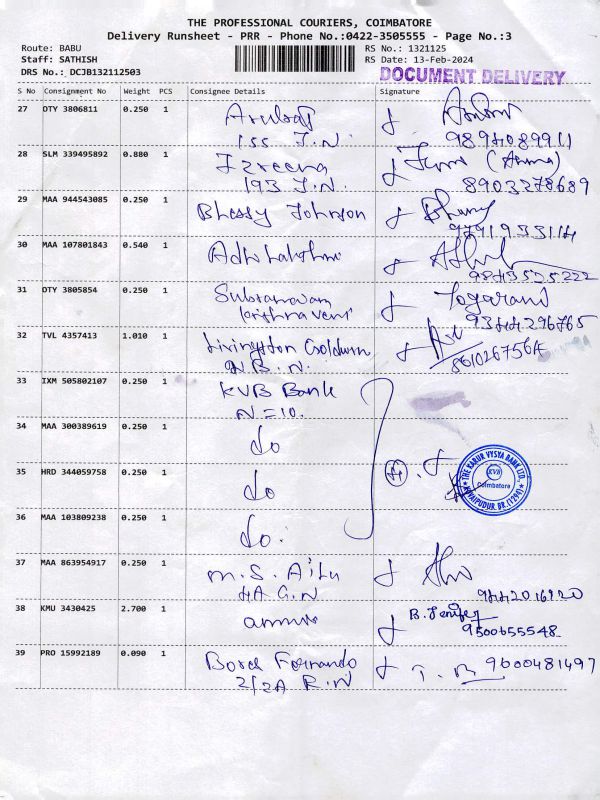 THE PROFESSIONAL COURIERS, COIMBATORE
Delivery Runsheet - PRR - Phone No.:0422-3505555 - Page No.:3
Route: BABU RS No.: 1321125
Staff: SATHISH RS Date: 13-Feb-2024
DRS No.: DCJB132112503 DOCUMENT DELIVERY
S No Consignment No Weight PCS Consignee Details Signature
27 OTY 3806811 0.250 1
155 J.N. 9894089911
28 SLM 339495892 0.880 1
193 J.N. 8903278689
29 MAA 944543085 0.250 1 Blessy Johnson
30 MAA 107801843 0.540 1
9843525222
31 OTY 3805854 0.250 1
9344296765
32 TVL 4357413 1.010 1 Livingston
N.B.N.
33 IXM 505802107 0.250 1 KVB Bank
N=10.
34 MAA 300389619 0.250 1 do
35 HRD 344059758 0.250 1 do
THE KARUR VYSYA BANK LTD.
KVB
Coimbatore
36 MAA 103809238 0.250 1 do.
37 MAA 863954917 0.250 1 M.S.
4A G.N 9442016920
38 KMU 3430425 2.700 1 B. Jenifer
9500655548
39 PRO 15992189 0.090 1 Fornando 9600481497
2/2A R.N